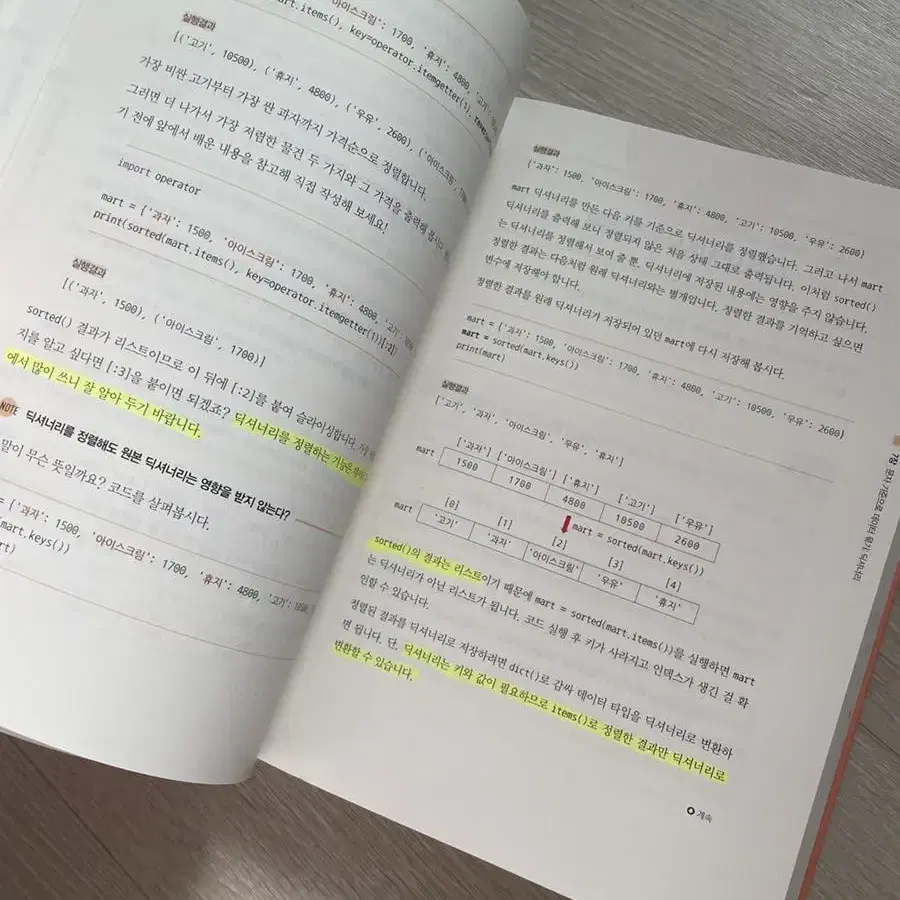 '아이스크림': 1700, '휴지': 4800, '고기'
mart.items(), key=operator.itemgetter(1),
실행결과
[('고기', 10500), ('휴지', 4800), ('우유', 2600), ('아이스크림',
가장 비싼 고기부터 가장 싼 과자까지 가격순으로 정렬합니다.
그러면 더 나가서 가장 저렴한 물건 두 가지와 그 가격을 출력해 봅시다.
기 전에 앞에서 배운 내용을 참고해 직접 작성해 보세요!
import operator
mart = {'과자': 1500, '아이스크림': 1700, '휴지': 4800, '고기'
print(sorted(mart.items(), key=operator.itemgetter(1))[:2])
실행결과
[('과자', 1500), ('아이스크림', 1700)]
sorted() 결과가 리스트이므로 이 뒤에 [:2]를 붙여 슬라이싱합니다.
지를 알고 싶다면 [:3]을 붙이면 되겠죠? 딕셔너리를 정렬하는 기능은
에서 많이 쓰니 잘 알아 두기 바랍니다.
NOTE 딕셔너리를 정렬해도 원본 딕셔너리는 영향을 받지 않는다?
말이 무슨 뜻일까요? 코드를 살펴봅시다.
= {'과자': 1500, '아이스크림': 1700, '휴지': 4800, '고기':
mart.keys())
mart)
실행결과
{'과자': 1500, '아이스크림': 1700, '휴지': 4800, '고기': 10500, '우유': 2600}
mart 딕셔너리를 만든 다음 키를 기준으로 딕셔너리를 정렬했습니다. 그러고 나서 mart
딕셔너리를 출력해 보니 정렬되지 않은 처음 상태 그대로 출력됩니다. 이처럼 sorted()
는 딕셔너리를 정렬해서 보여 줄 뿐, 딕셔너리에 저장된 내용에는 영향을 주지 않습니다.
정렬한 결과는 다음처럼 원래 딕셔너리와는 별개입니다. 정렬한 결과를 기억하고 싶으면
변수에 저장해야 합니다.
정렬한 결과를 원래 딕셔너리가 저장되어 있던 mart에 다시 저장해 봅시다.
mart = {'과자': 1500, '아이스크림': 1700, '휴지': 4800, '고기': 10500, '우유': 2600}
mart = sorted(mart.keys())
print(mart)
실행결과
['고기', '과자', '아이스크림', '우유', '휴지']
['과자'] ['아이스크림'] ['휴지'] ['고기'] ['우유']
mart 1500 1700 4800 10500 2600
mart = sorted(mart.keys())
[0] [1] [2] [3] [4]
mart '고기' '과자' '아이스크림' '우유' '휴지'
sorted()의 결과는 리스트이기 때문에 mart = sorted(mart.items())를 실행하면 mart
는 딕셔너리가 아닌 리스트가 됩니다. 코드 실행 후 키가 사라지고 인덱스가 생긴 걸 확
인할 수 있습니다.
정렬된 결과를 딕셔너리로 저장하려면 dict()로 감싸 데이터 타입을 딕셔너리로 변환하
면 됩니다. 단, 딕셔너리는 키와 값이 필요하므로 items()로 정렬한 결과만 딕셔너리로
변환할 수 있습니다.
계속
7장